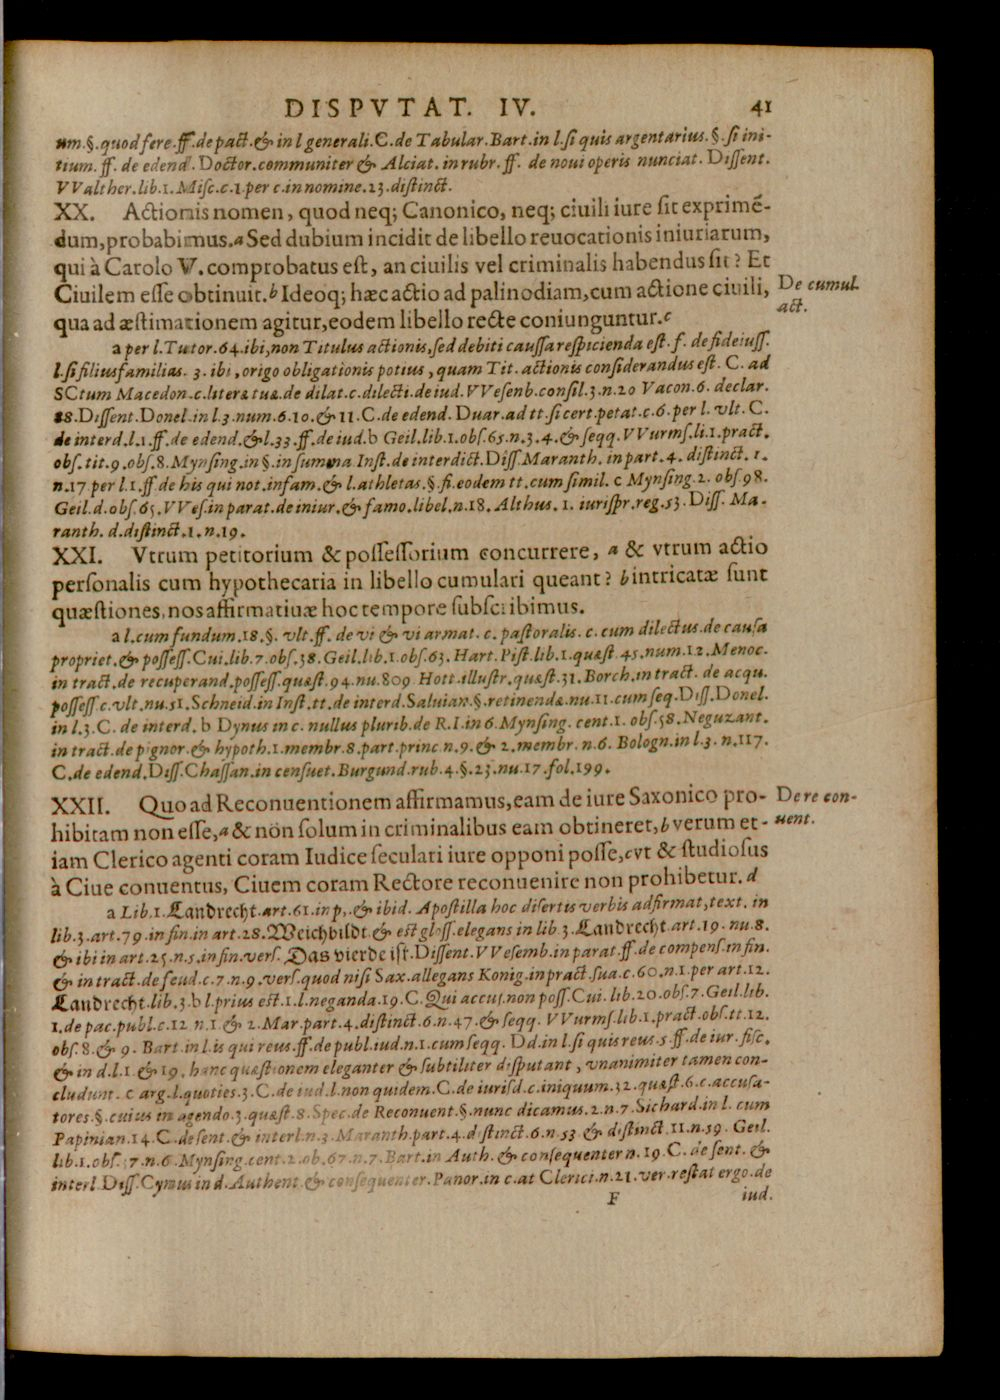 DISPVTAT. IV. 41
um.§.quod fere.ff.de pact.& in l generali.C.de Tabular.Bart.in l.ſi quis argentarius.§.ſi ini-
tium.ff. de edend. Doctor.communiter & Alciat. in rubr. ff. de noui operis nunciat. Diſſent.
VValther.lib.1.Miſc.c.1.per c.in nomine.23.diſtinct.
XX. Actionis nomen, quod neq; Canonico, neq; ciuili iure ſit exprimē-
dum,probabimus.a Sed dubium incidit de libello reuocationis iniuriarum,
qui à Carolo V.comprobatus eſt, an ciuilis vel criminalis habendus ſit? Et
Ciuilem eſſe obtinuit.b Ideoq; hæc actio ad palinodiam,cum actione ciuili,
De cumul.
act.
qua ad æſtimationem agitur,eodem libello recte coniunguntur.c
a per l.Tutor.64.ibi,non Titulus actionis,ſed debiti cauſſa reſpicienda eſt.f. de fideiuſſ.
l.ſi filiusfamilias. 3. ibi, origo obligationis potius, quam Tit. actionis conſiderandus eſt. C. ad
SCtum Macedon.c.literæ tuæ.de dilat.c.dilecti.de iud.VVeſenb.conſil.3.n.20 Vacon.6. declar.
88.Diſſent.Donel.in l.3.num.6.10.& 11.C.de edend. Duar.ad tt.ſi cert.petat.c.6.per l. vlt. C.
de interd.l.1.ff.de edend.& l.33.ff.de iud.b Geil.lib.1.obſ.65.n.3.4.& ſeqq.VVurmſ.li.1.pract.
obſ.tit.9.obſ.8.Mynſing.in §.in ſumma Inſt.de interdict.Diſſ.Maranth. in part.4. diſtinct. 1.
n.17 per l.1.ff.de his qui not.infam.& l.athletas.§.ſi.eodem tt.cum ſimil. c Mynſing.2. obſ 98.
Geil.d.obſ.65.VVeſ.in parat.de iniur.& famo.libel.n.18. Althus. 1. iuriſpr.reg.53.Diſſ. Ma-
ranth. d.diſtinct.1.n.19.
XXI. Vtrum petitorium & poſſeſſorium concurrere, a & vtrum actio
perſonalis cum hypothecaria in libello cumulari queant? b intricatæ ſunt
quæſtiones,nos affirmatiuæ hoc tempore ſubſcribimus.
a l.cum fundum.18.§. vlt.ff. de vi & vi armat. c. paſtoralis. c. cum dilectus.de cauſa
propriet.& poſſeſſ.Cui.lib.7.obſ.38.Geil.lib.1.obſ.63. Hart. Piſt.lib.1.quæſt.45.num.12.Menoc.
in tract.de recuperand.poſſeſſ.quæſt.94.nu.809 Hott.illuſtr.quæſt.31.Borch.in tract. de acqu.
poſſeſſ.c.vlt.nu.51.Schneid.in Inſt.tt.de interd.Saluian.§.retinendæ.nu.11.cum ſeq.Diſſ.Donel.
in l.3.C. de interd. b Dynus in c. nullus plurib.de R.I.in 6.Mynſing. cent.1. obſ.58.Neguzant.
in tract.de pignor.& hypoth.1.membr.8.part.princ.n.9.& 2.membr. n.6. Bologn.in l.3. n.117.
C.de edend.Diſſ.Chaſſan.in conſuet.Burgund.rub.4.§.23.nu.17.fol.199.
XXII. Quo ad Reconuentionem affirmamus,eam de iure Saxonico pro-
De re con-
uent.
hibitam non eſſe,a & non ſolum in criminalibus eam obtineret,b verum et-
iam Clerico agenti coram Iudice ſeculari iure opponi poſſe,c vt & ſtudioſus
à Ciue conuentus, Ciuem coram Rectore reconuenire non prohibetur.d
a Lib.1.Landrecht.art.61.in p,.& ibid. Apoſtilla hoc diſertis verbis adfirmat,text. in
lib.3.art.79.in fin.in art.28.Weichbildt.& eſt gloſſ.elegans in lib.3.Landrecht.art.19.nu.8.
& ibi in art.25.n.5.in fin.verſ. Das vierde iſt.Diſſent.VVeſemb.in parat.ff.de compenſ.in fin.
& in tract.de feud.c.7.n.9.verſ.quod niſi Sax.allegans Konig.in pract.ſua.c.60.n.1.per art.12.
Landrecht.lib.3.b l.prius eſt.1.l.neganda.19.C.Qui accuſ.non poſſ.Cui.lib.20.obſ.7.Geil.lib.
1.de pac.publ.c.12 n.1.& 2.Mar.part.4.diſtinct.6.n.47.& ſeqq. VVurmſ.lib.1.pract.obſ.tt.12.
obſ.8.& 9. Bart.in l.is qui reus.ff.de publ.iud.n.1.cum ſeqq. Dd.in l.ſi quis reus.5.ff.de iur.fiſc.
& in d.l.1.& 19.hanc quæſtionem eleganter & ſubtiliter diſputant, vnanimiter tamen con-
cludunt. c arg.l.quoties.3.C.de iud.l.non quidem.C.de iuriſd.c.iniquum.32.quæſt.6.c.accuſa-
tores.§.cuius in agendo.3.quæſt.8.Spec.de Reconuent.§.nunc dicamus.2.n.7.Sichard.in l. cum
Papinian.14.C.de ſent.& interl.n.3.Maranth.part.4.diſtinct.6.n.53 & diſtinct.11.n.59. Geil.
lib.1.obſ.37.n.6.Mynſing.cent.2.ob.67.n.7.Bart.in Auth.& conſequenter n.19.C.de ſent. &
interl.Diſſ.Cynus in d.Authent.& conſequenter.Panor.in c.at Clerici.n.21.ver.reſtat ergo.de
F iud.